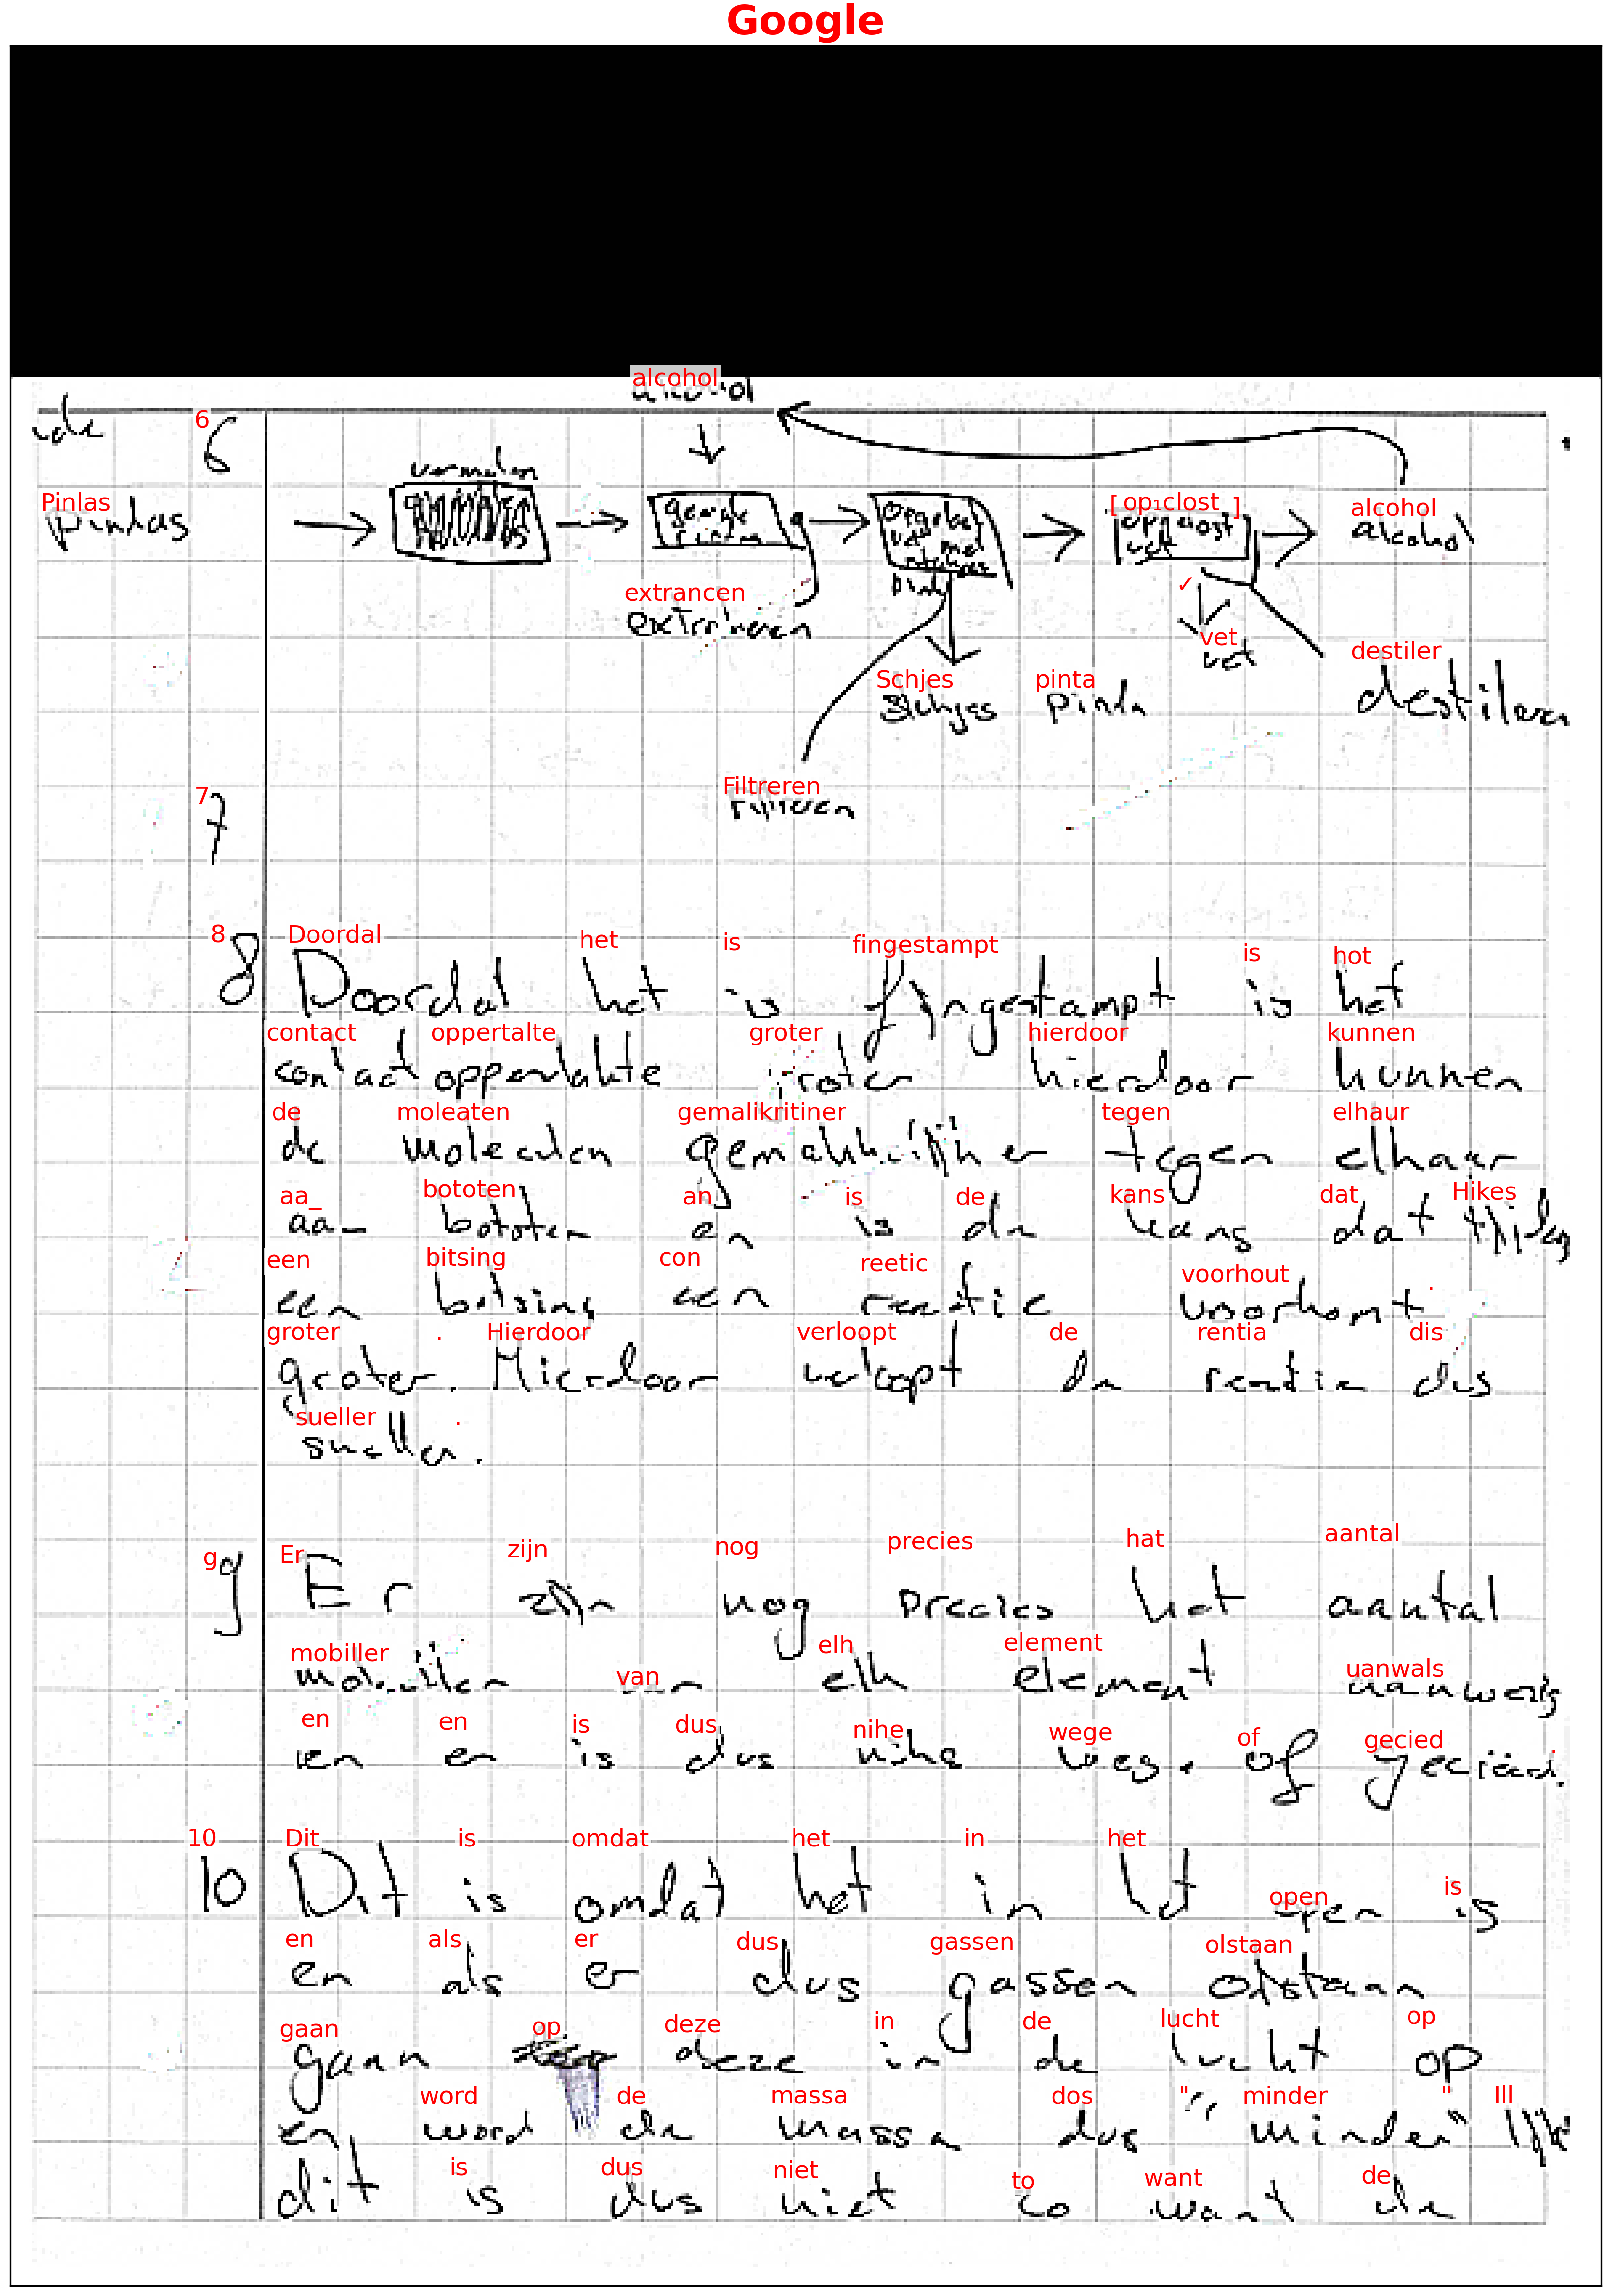 Google
alcohol
6
vermalen
Pinlas
pindas
gemale
pindas
opgelost
vet met
pinda
[ op1clost ]
opgelost
vet
alcohol
alcohol
extrancen
✓
vet
vet
destiler
destileren
Schjes
pinta
pinda
Filtreren
7
7
8 Doordal het is fingestampt is hot
8 Doordat het is fijngestampt is het
contact oppertalte groter hierdoor kunnen
contact oppervlakte groter hierdoor kunnen
de moleaten gemalikritiner tegen elhaur
de moleculen gemakkelijker tegen elkaar
aa_ bototen an is de kans dat Hikes
aan bototen en is de kans dat tijdens
een bitsing con reetic voorhout .
een botsing een reactie voorkomt
groter . Hierdoor verloopt de rentia dis
groter. Hierdoor verloopt de reactie dus
sueller .
sneller.
g Er zijn nog precies hat aantal
9 Er zijn nog precies het aantal
mobiller van elh element uanwals
van elk element aanwezig
en en is dus nihe wege of gecied .
en er is dus niks weg. of gecieerd.
10 Dit is omdat het in het open is
10 Dit is omdat het in het open is
en als er dus gassen olstaan
en als er dus gassen otstaan
gaan op deze in de lucht op
gaan deze in de lucht op
word de massa dos " minder " III
en word de massa dus "minder" lijkt
is dus niet to want de
dit is dus niet zo want de